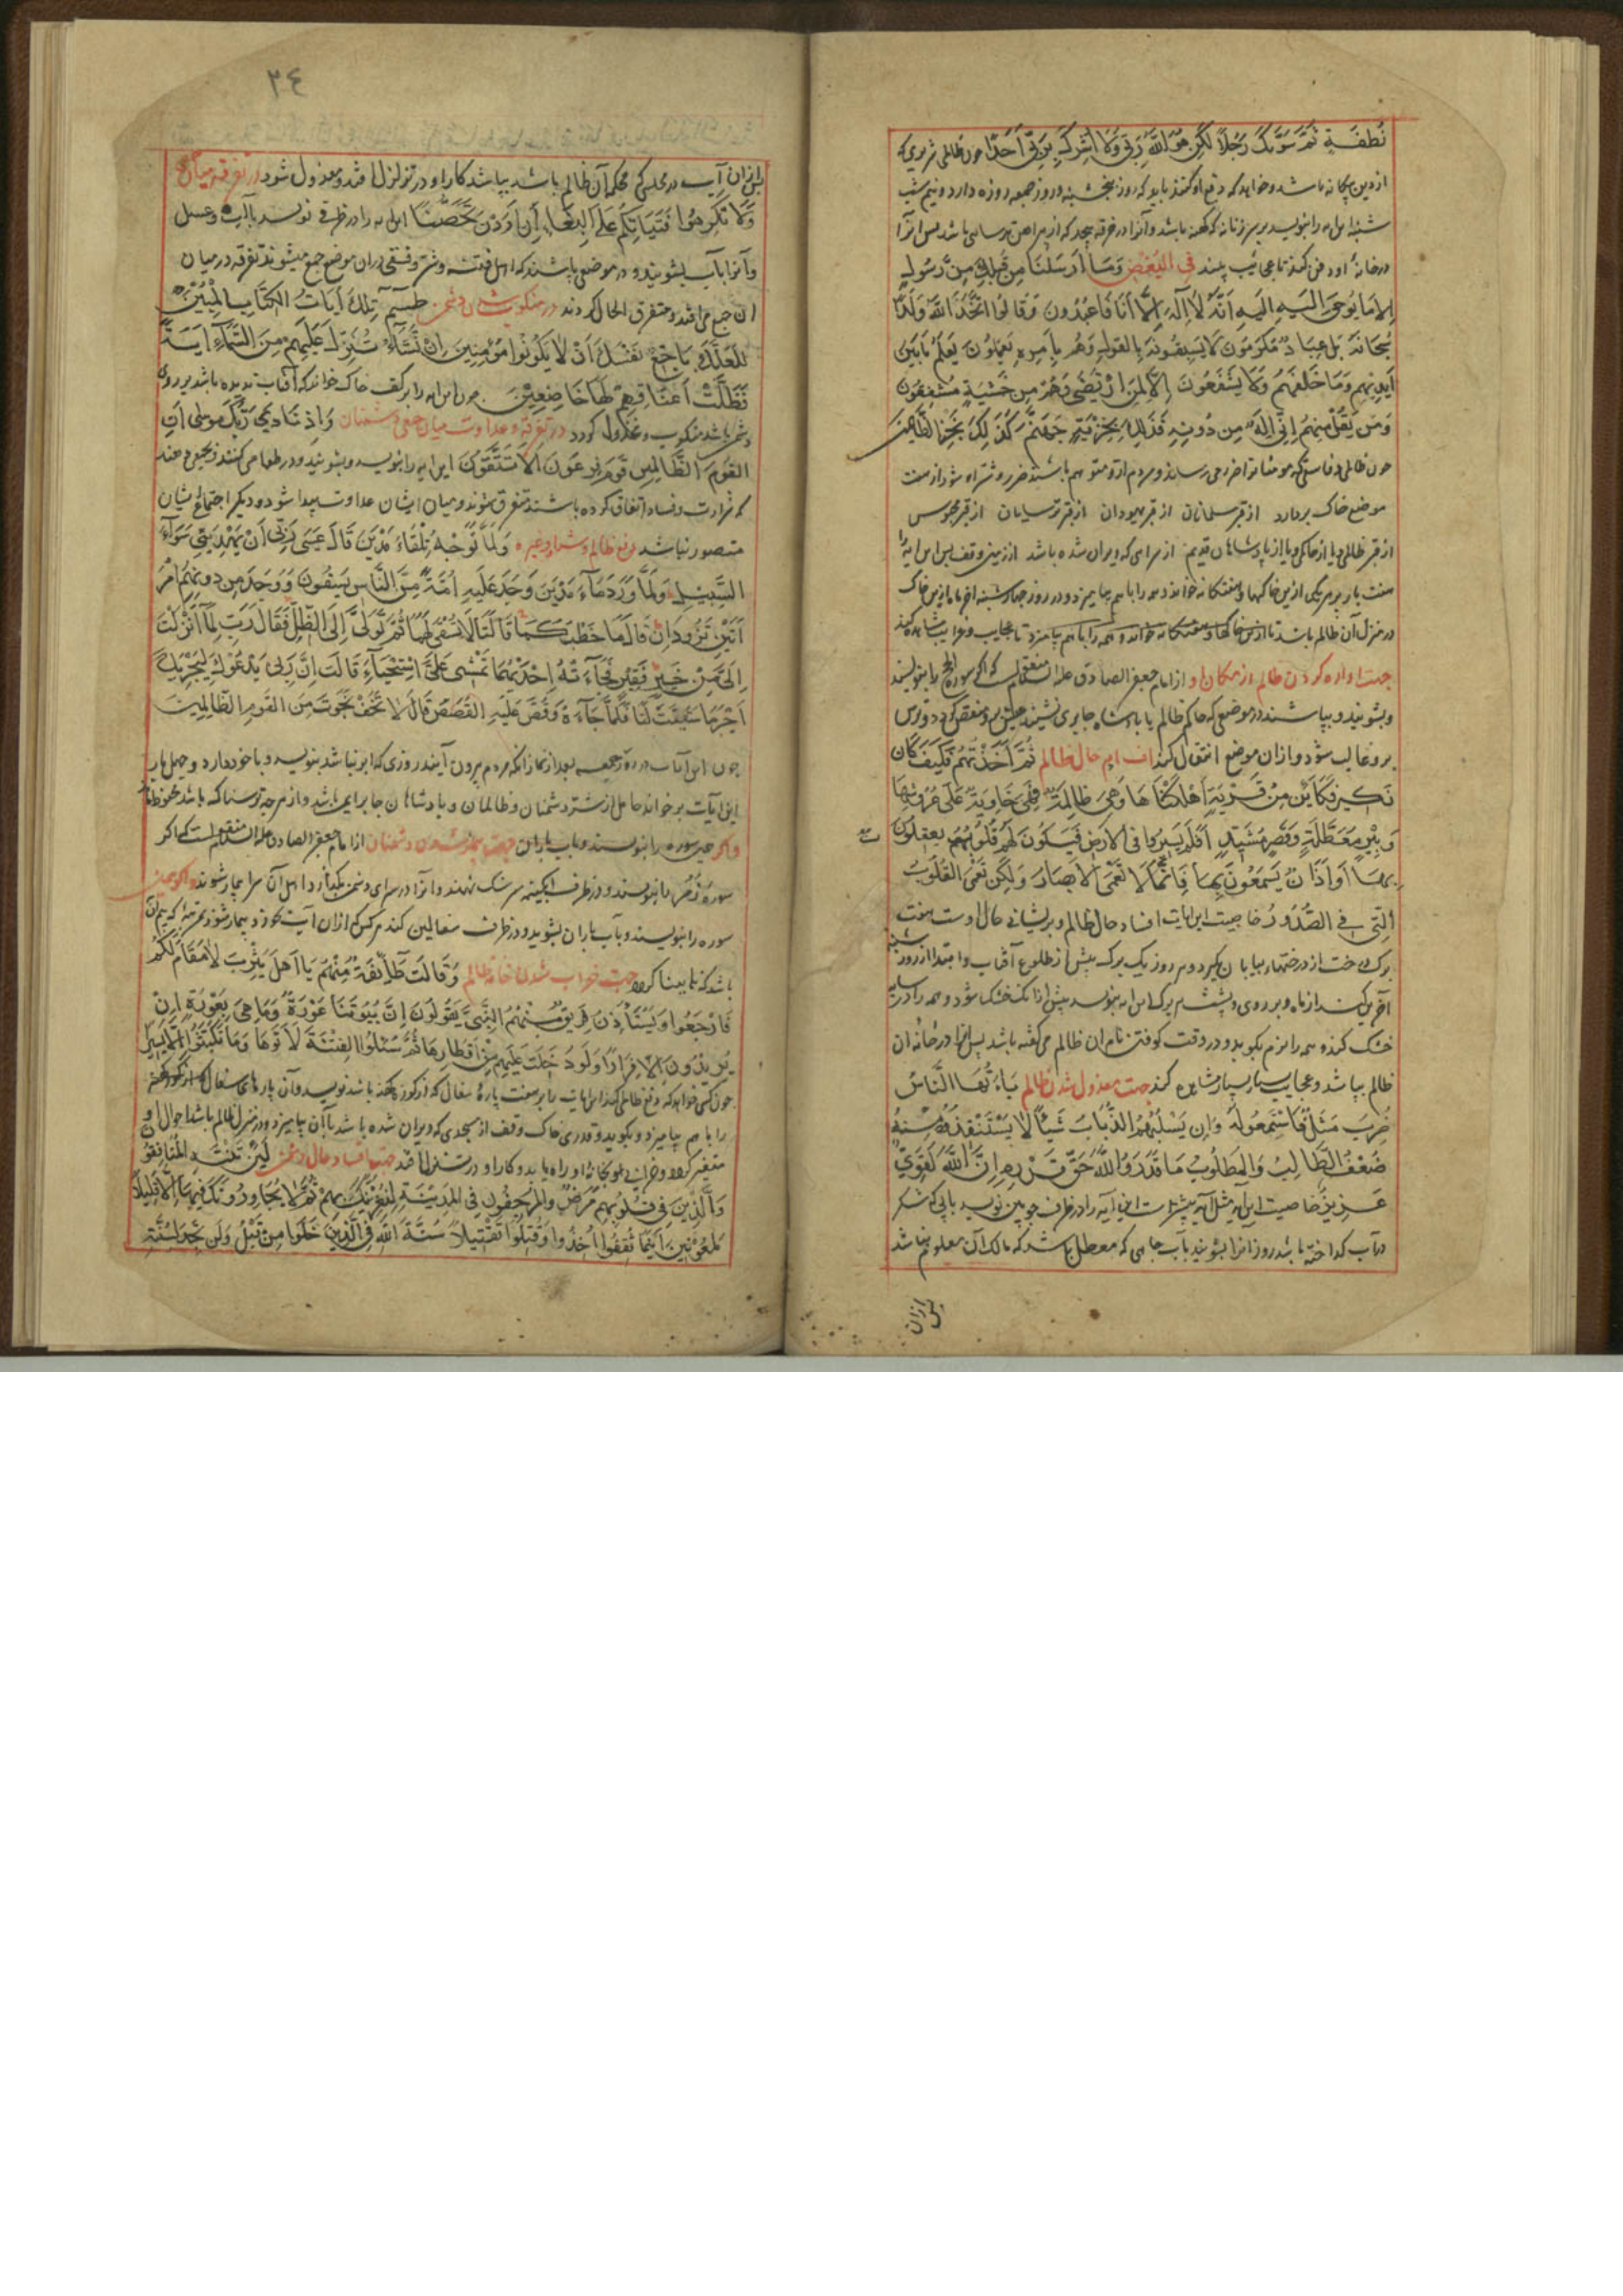 نُطْفَةٍ ثُمَّ سَوّٰیكَ رَجُلًا لٰكِنَّ هُوَ اللّٰهُ رَبِّی وَلَا اُشْرِكُ بِرَبِّی اَحَدًا چون ظالمی شریری که
از دین بیکانه باشد و خواهد که دفع او کنند باید که روز پنجشنبه و روز جمعه روزه دارد و نیم شب
شنبه این ایه را بنویسد بر کهنه باشد و آنرا در خرقه پیچد که از پیراهن ترسایی باشد پس آنرا
در خانهٔ او دفن کند تا عجائب بیند فی البغض وَمَا اَرْسَلْنَا مِنْ قَبْلِكَ مِنْ رَسُولٍ
اِلَّا مَا یُوحٰی اِلَیْهِ اَنَّهُ لَا اِلٰهَ اِلَّا اَنَا فَاعْبُدُونِ وَقَالُوا اتَّخَذَ اللّٰهُ وَلَدًا
سُبْحَانَهُ بَلْ عِبَادٌ مُكْرَمُونَ لَا یَسْبِقُونَهُ بِالْقَوْلِ وَهُمْ بِاَمْرِهِ یَعْمَلُونَ یَعْلَمُ مَا بَیْنَ
اَیْدِیهِمْ وَمَا خَلْفَهُمْ وَلَا یَشْفَعُونَ اِلَّا لِمَنِ ارْتَضٰی وَهُمْ مِنْ خَشْیَتِهِ مُشْفِقُونَ
وَمَنْ یَقُلْ مِنْهُمْ اِنِّی اِلٰهٌ مِنْ دُونِهِ فَذٰلِكَ نَجْزِیهِ جَهَنَّمَ كَذٰلِكَ نَجْزِی الظَّالِمِینَ
چون ظالمی و فاسقی که مومنانرا ضرر می رساند و مردم ازو متوهم باشند ضرر و شر او شود از هفت
موضع خاک بردارد از قبر مسلمانان از قبر یهودان از قبر ترسایان از قبر مجوس
از قبر ظالمی و یا از خاکی و یا از پادشاهان قدیم از سرایی که ویران شده باشد از زمین وقف پس این ایه را
هفت بار بر هر یکی ازین خاکها و هفتکانه خواند و همه را با هم بیامیزد و در روز چهارشنبه آخر ماه ازین خاک
در منزل آن ظالم باشد
جهت اواره کردن ظالم از مکان او از امام جعفر الصادق علیه السلام منقولست که اکر سوره را بنویسند
و بشویند و بپاشند در موضعی که حاکم ظالم یا پادشاه جابری نشیند عیش برو منغص کردد و ترس
برو غالب شود و ازان موضع انتقال کند ثُمَّ اَخَذْتُهُمْ فَكَیْفَ كَانَ
نَكِیرِ فَكَاَیِّنْ مِنْ قَرْیَةٍ اَهْلَكْنَاهَا وَهِیَ ظَالِمَةٌ فَهِیَ خَاوِیَةٌ عَلٰی عُرُوشِهَا
وَبِئْرٍ مُعَطَّلَةٍ وَقَصْرٍ مَشِیدٍ اَفَلَمْ یَسِیرُوا فِی الْاَرْضِ فَیَكُونَ لَهُمْ قُلُوبٌ یَعْقِلُونَ
بِهَا اَوْ اٰذَانٌ یَسْمَعُونَ بِهَا فَاِنَّهَا لَا تَعْمَی الْاَبْصَارُ وَلٰكِنْ تَعْمَی الْقُلُوبُ
الَّتِی فِی الصُّدُورِ خاصیت این ایات افساد حال ظالم و پریشانی حال اوست هفت
برک درخت از درختهاء بیابان بکیرد و هر روز یک برک پیش از طلوع آفتاب و ابتدا از روز شنبه
آخرین کند از ماه و بر روی و پشت هر برک این ایه بنویسد پیش از آنکه خشک شود و همه را در سایه
خشک کند و همه را نرم بکوبد و در وقت کوفتن نام ان ظالم می کفته باشد پس انرا در خانهٔ ان
ظالم بپاشد و عجایب بسیار مشاهده کند جهت معذول شدن ظالم یَا اَیُّهَا النَّاسُ
ضُرِبَ مَثَلٌ فَاسْتَمِعُوا لَهُ وَاِنْ یَسْلُبْهُمُ الذُّبَابُ شَیْئًا لَا یَسْتَنْقِذُوهُ مِنْهُ
ضَعُفَ الطَّالِبُ وَالْمَطْلُوبُ مَا قَدَرُوا اللّٰهَ حَقَّ قَدْرِهِ اِنَّ اللّٰهَ لَقَوِیٌّ
عَزِیزٌ خاصیت این ایه مثل آیه پیشترست این آیه را در ظرف چوبین نویسد بآبی که شکر
در آب کداخته باشد و انرا بشویند بآب چاهی که معطل باشد که مالک آن معلوم نباشد
پس ازان
٢٤
پس ازان آب در مجلس حکم آن ظالم باشد بپاشد کار او در تزلزل افتد و معذول شود در تفرقه میان
وَلَا تُكْرِهُوا فَتَیَاتِكُمْ عَلَی الْبِغَاءِ اِنْ اَرَدْنَ تَحَصُّنًا این ایه را در ظرفی نویسد بآب و عسل
و آنرا بآب بشویند و در موضعی پاشند که اهل فتنه و شر و فسق دران موضع جمع میشوند تفرقه در میان
ان جمع افتد و متفرق الحال کردند در منکوب شدن دشمن طٰسٓمٓ تِلْكَ اٰیَاتُ الْكِتَابِ الْمُبِینِ
لَعَلَّكَ بَاخِعٌ نَفْسَكَ اَنْ لَا یَكُونُوا مُؤْمِنِینَ اِنْ نَشَاْ نُنَزِّلْ عَلَیْهِمْ مِنَ السَّمَاءِ اٰیَةً
فَظَلَّتْ اَعْنَاقُهُمْ لَهَا خَاضِعِینَ چون این ایه را بر کف خاک خواند که آفتاب ندیده باشد بر روی
دشمن پاشد منکوب و مخذول کردد در تفرقه و عداوت میان جمعی دشمنان وَاِذْ نَادٰی رَبُّكَ مُوسٰی اَنِ ائْتِ
الْقَوْمَ الظَّالِمِینَ قَوْمَ فِرْعَوْنَ اَلَا یَتَّقُونَ این ایه را بنویسد و بشویند و در طعامی کنند و بجمعی دهند
که بر شرارت و فساد اتفاق کرده باشند متفرق شوند و میان ایشان عداوت پیدا شود و دیکر اجتماع ایشان
متصور نباشد دفع ظالم و شر او و غیره وَلَمَّا تَوَجَّهَ تِلْقَاءَ مَدْیَنَ قَالَ عَسٰی رَبِّی اَنْ یَهْدِیَنِی سَوَاءَ
السَّبِیلِ وَلَمَّا وَرَدَ مَاءَ مَدْیَنَ وَجَدَ عَلَیْهِ اُمَّةً مِنَ النَّاسِ یَسْقُونَ وَوَجَدَ مِنْ دُونِهِمُ امْرَ
اَتَیْنِ تَذُودَانِ قَالَ مَا خَطْبُكُمَا قَالَتَا لَا نَسْقِی لَهُمَا ثُمَّ تَوَلّٰی اِلَی الظِّلِّ فَقَالَ رَبِّ لِمَا اَنْزَلْتَ
اِلَیَّ مِنْ خَیْرٍ فَقِیرٌ فَجَاءَتْهُ اِحْدٰیهُمَا تَمْشِی عَلَی اسْتِحْیَاءٍ قَالَتْ اِنَّ اَبِی یَدْعُوكَ لِیَجْزِیَكَ
اَجْرَ مَا سَقَیْتَ لَنَا فَلَمَّا جَاءَهُ وَقَصَّ عَلَیْهِ الْقَصَصَ قَالَ لَا تَخَفْ نَجَوْتَ مِنَ الْقَوْمِ الظَّالِمِینَ
چون این آیات در روز جمعه بعد از نماز انکه مردم بیرون آیند روزی که ابر نباشد بنویسد و با خود دارد و چهل بار
این آیات برخواند حامل از شر دشمنان و ظالمان و پادشاهان جابر ایمن باشد و از هرچه ترسناک باشد محفوظ ماند
واکر همین سوره را بنویسند و بآب باران جهت بیمار شدن دشمنان از امام جعفر الصادق علیه السلام منقولست که اکر
سوره را بنویسند و در ظرف آبکینه سرتنک نهند و آنرا در سرای دشمن بکذارد اهل آن سرا بیمار شوند و اکر همین
سوره را بنویسند و بآب باران بشوید و در ظرف سفالین کند هرکس که ازان آب بخورد بیمار شود بمرتبهٔ که بیم آن
باشد که نابینا کردد جهت خراب شدن خانهٔ ظالم وَقَالَتْ طَائِفَةٌ مِنْهُمْ یَا اَهْلَ یَثْرِبَ لَا مُقَامَ لَكُمْ
فَارْجِعُوا وَیَسْتَاْذِنُ فَرِیقٌ مِنْهُمُ النَّبِیَّ یَقُولُونَ اِنَّ بُیُوتَنَا عَوْرَةٌ وَمَا هِیَ بِعَوْرَةٍ اِنْ
یُرِیدُونَ اِلَّا فِرَارًا وَلَوْ دُخِلَتْ عَلَیْهِمْ مِنْ اَقْطَارِهَا ثُمَّ سُئِلُوا الْفِتْنَةَ لَاٰتَوْهَا وَمَا تَلَبَّثُوا اِلَّا یَسِیرًا
چون کسی خواهد که دفع ظالمی کند این ایات را بر هفت پارهٔ سفال که از کوزهٔ کهنه باشد نویسد و آن پارهای سفال
را با هم بیامیزد و بکوبد و قدری خاک وقف از مسجدی که ویران شده باشد بآن بیامیزد و در منزل ظالم پاشد احوال او
متغیر کردد و خرابی بخانهٔ او راه یابد و کار او در تنزل افتد جهت افساد حال دشمن لَئِنْ لَمْ یَنْتَهِ الْمُنَافِقُونَ
وَالَّذِینَ فِی قُلُوبِهِمْ مَرَضٌ وَالْمُرْجِفُونَ فِی الْمَدِینَةِ لَنُغْرِیَنَّكَ بِهِمْ ثُمَّ لَا یُجَاوِرُونَكَ فِیهَا اِلَّا قَلِیلًا
مَلْعُونِینَ اَیْنَمَا ثُقِفُوا اُخِذُوا وَقُتِّلُوا تَقْتِیلًا سُنَّةَ اللّٰهِ فِی الَّذِینَ خَلَوْا مِنْ قَبْلُ وَلَنْ تَجِدَ لِسُنَّةِ